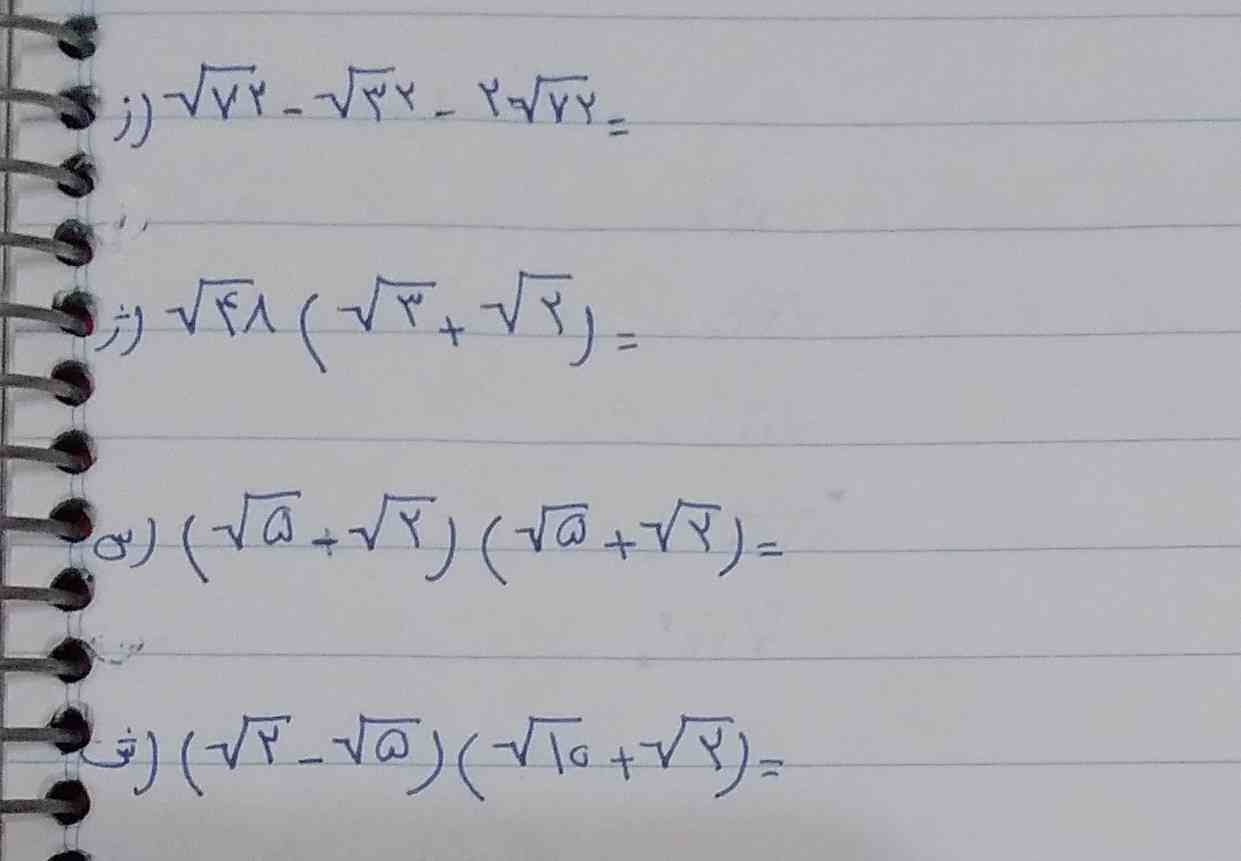 ز) √۷۲ - √۳۲ - ۲√۷۲ =
ژ) √۴۸ (√۳ + √۲) =
س) (√۵ + √۲) (√۵ + √۲) =
ش) (√۲ - √۵) (√۱۰ + √۲) =